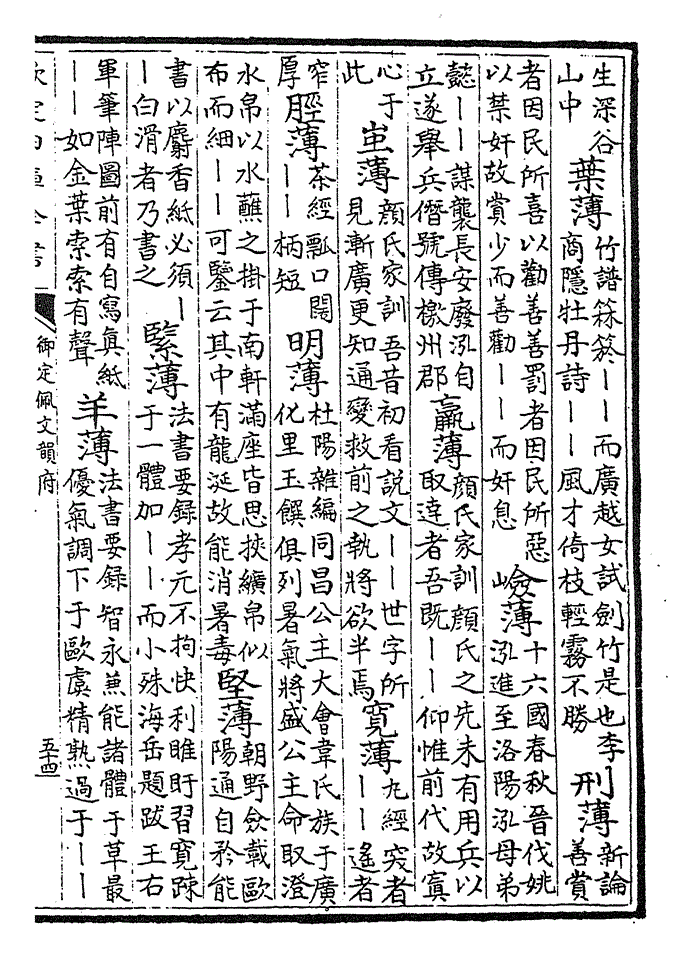 生深谷
山中
葉薄
竹譜箖箊――而廣越女試劍竹是也李
商隱牡丹詩――風才倚枝輕霧不勝
刑薄
新論
善賞
者因民所喜以勸善善罰者因民所惡
以禁奸故賞少而善勸――而奸息
嶮薄
十六國春秋晉伐姚
泓進至洛陽泓母弟
懿――謀襲長安廢泓自
立遂舉兵僭號傳檄州郡
羸薄
顏氏家訓顏氏之先未有用兵以
取達者吾既――仰惟前代故寘
心于
此
蚩薄
顏氏家訓吾昔初看說文――世字所
見漸廣更知通變救前之執將欲半焉
寬薄
九經突者
――遙者
窄
厚
脛薄
茶經瓢口闊
――柄短
明薄
杜陽雜編同昌公主大會韋氏族于廣
化里玉饌俱列暑氣將盛公主命取澄
水帛以水蘸之掛于南軒滿座皆思挾纊帛似
布而細――可鑒云其中有龍涎故能消暑毒
堅薄
朝野僉載歐
陽通自矜能
書以麝香紙必須―
―白滑者乃書之
緊薄
法書要錄孝元不拘快利睢盱習寬疎
于一體加――而小殊海岳題跋王右
軍筆陣圖前有自寫真紙
――如金葉索索有聲
羊薄
法書要錄智永兼能諸體于草最
優氣調下于歐虞精熟過于――
欽定四庫全書
御定佩文韻府
五十四